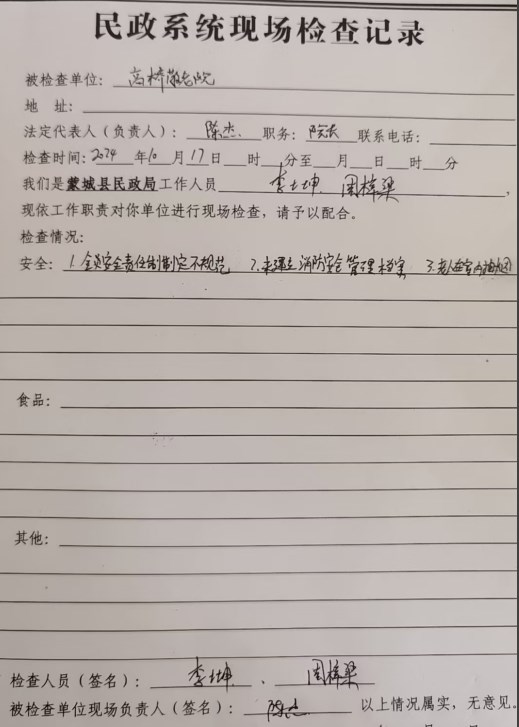 民政系统现场检查记录
被检查单位：高桥敬老院
地 址：
法定代表人（负责人）：陈杰 职务：院长 联系电话：
检查时间：2024年10月17日 时 分至 月 日 时 分
我们是蒙城县民政局工作人员 李士坤 周梓梁，
现依工作职责对你单位进行现场检查，请予以配合。
检查情况：
安全：1.全员安全责任制制定不规范 2.未建立消防安全管理档案 3.老人在室内抽烟
食品：
其他：
检查人员（签名）：李士坤、周梓梁
被检查单位现场负责人（签名）：陈杰 以上情况属实，无意见。